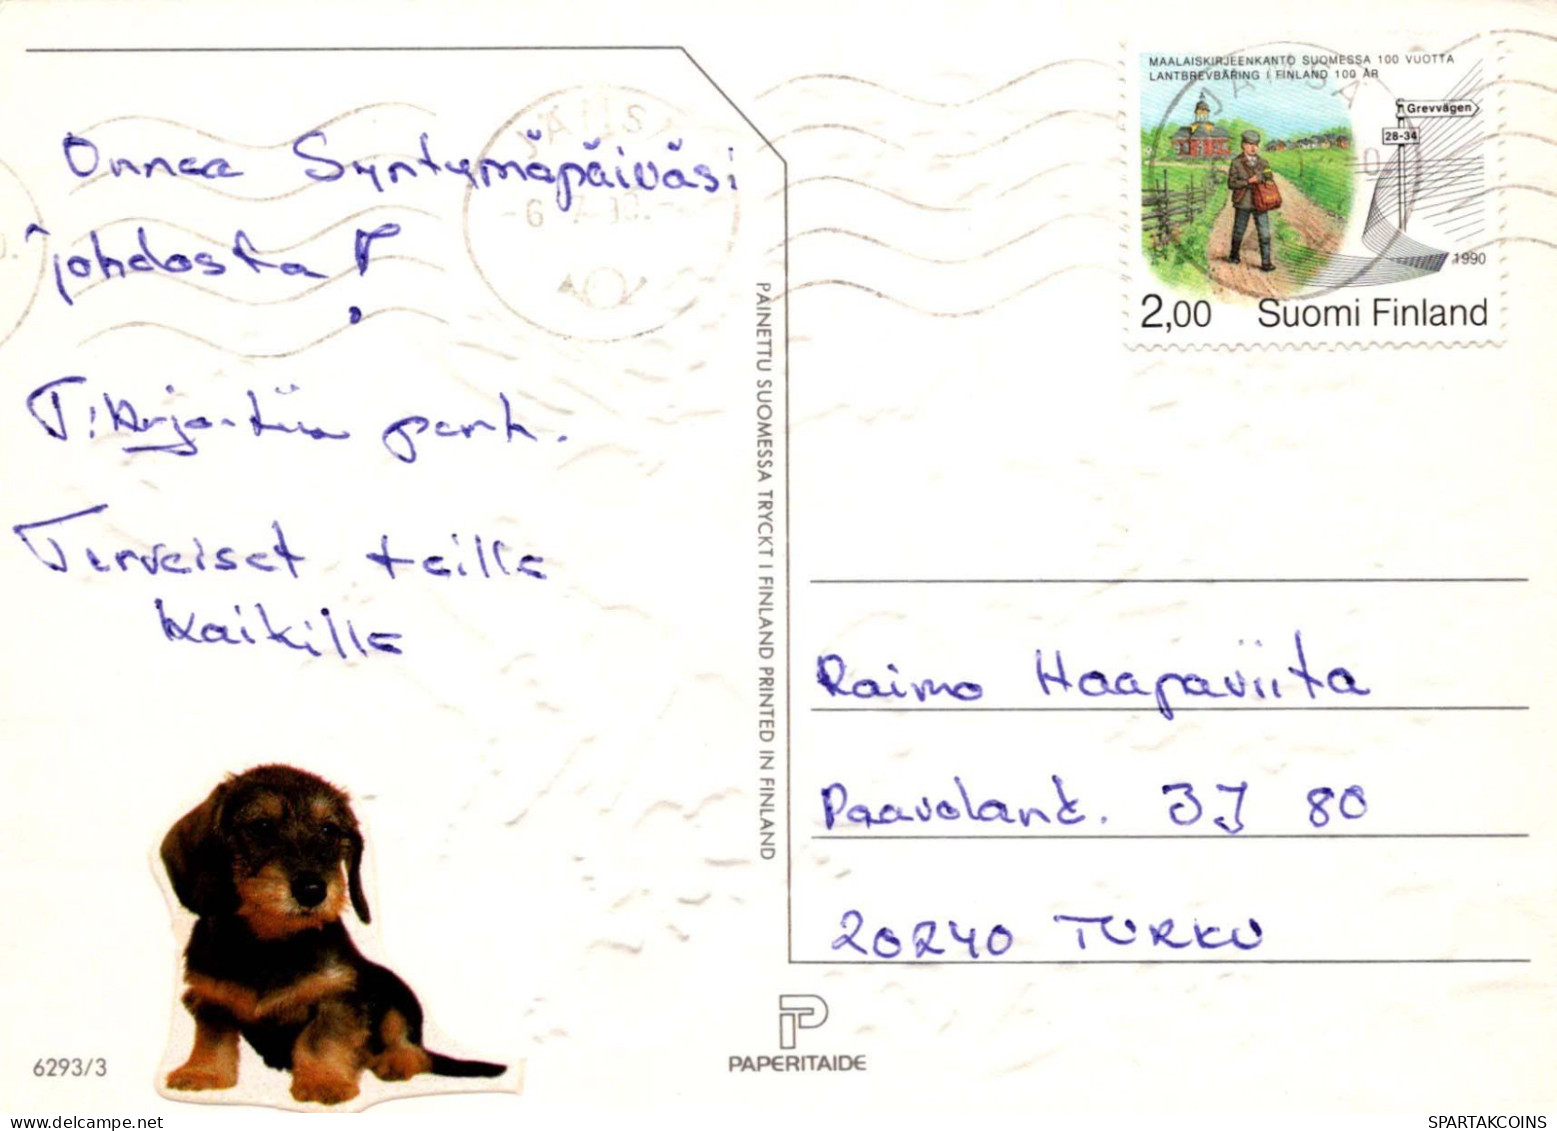 Onnea Syntymäpäiväsi
johdosta!
T: Kirja-Liisa perh.
Terveiset teille
kaikille
6293/3
PAINETTU SUOMESSA TRYCKT I FINLAND PRINTED IN FINLAND
PAPERITAIDE
MAALAISKIRJEENKANTO SUOMESSA 100 VUOTTA
LANTBREVBÄRING I FINLAND 100 ÅR
Grevvägen
28-34
1990
2,00 Suomi Finland
JÄMSÄ
Raimo Haapaviita
Paavolank. 3J 80
20240 TURKU
SPARTAKCOINS